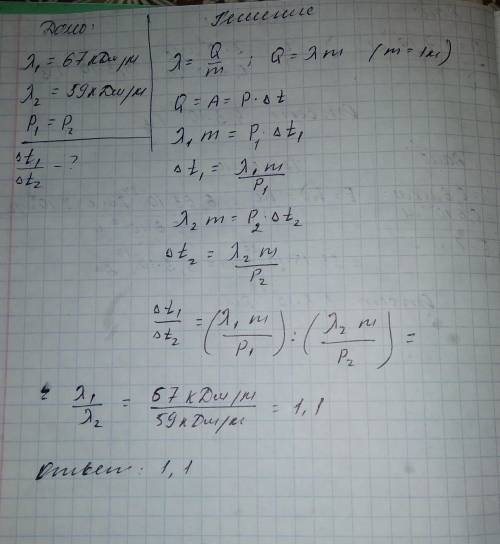 Дано:
λ₁ = 67 кДж/м
λ₂ = 59 кДж/м
P₁ = P₂
Δt₁/Δt₂ - ?
Решение
λ = Q/m ; Q = λm (m = 1м)
Q = A = P · Δt
λ₁ m = P₁ · Δt₁
Δt₁ = λ₁ m/P₁
λ₂ m = P₂ · Δt₂
Δt₂ = λ₂ m/P₂
Δt₁/Δt₂ = (λ₁ m/P₁) : (λ₂ m/P₂) =
λ₁/λ₂ = 67 кДж/м / 59 кДж/м = 1,1
Ответ: 1,1